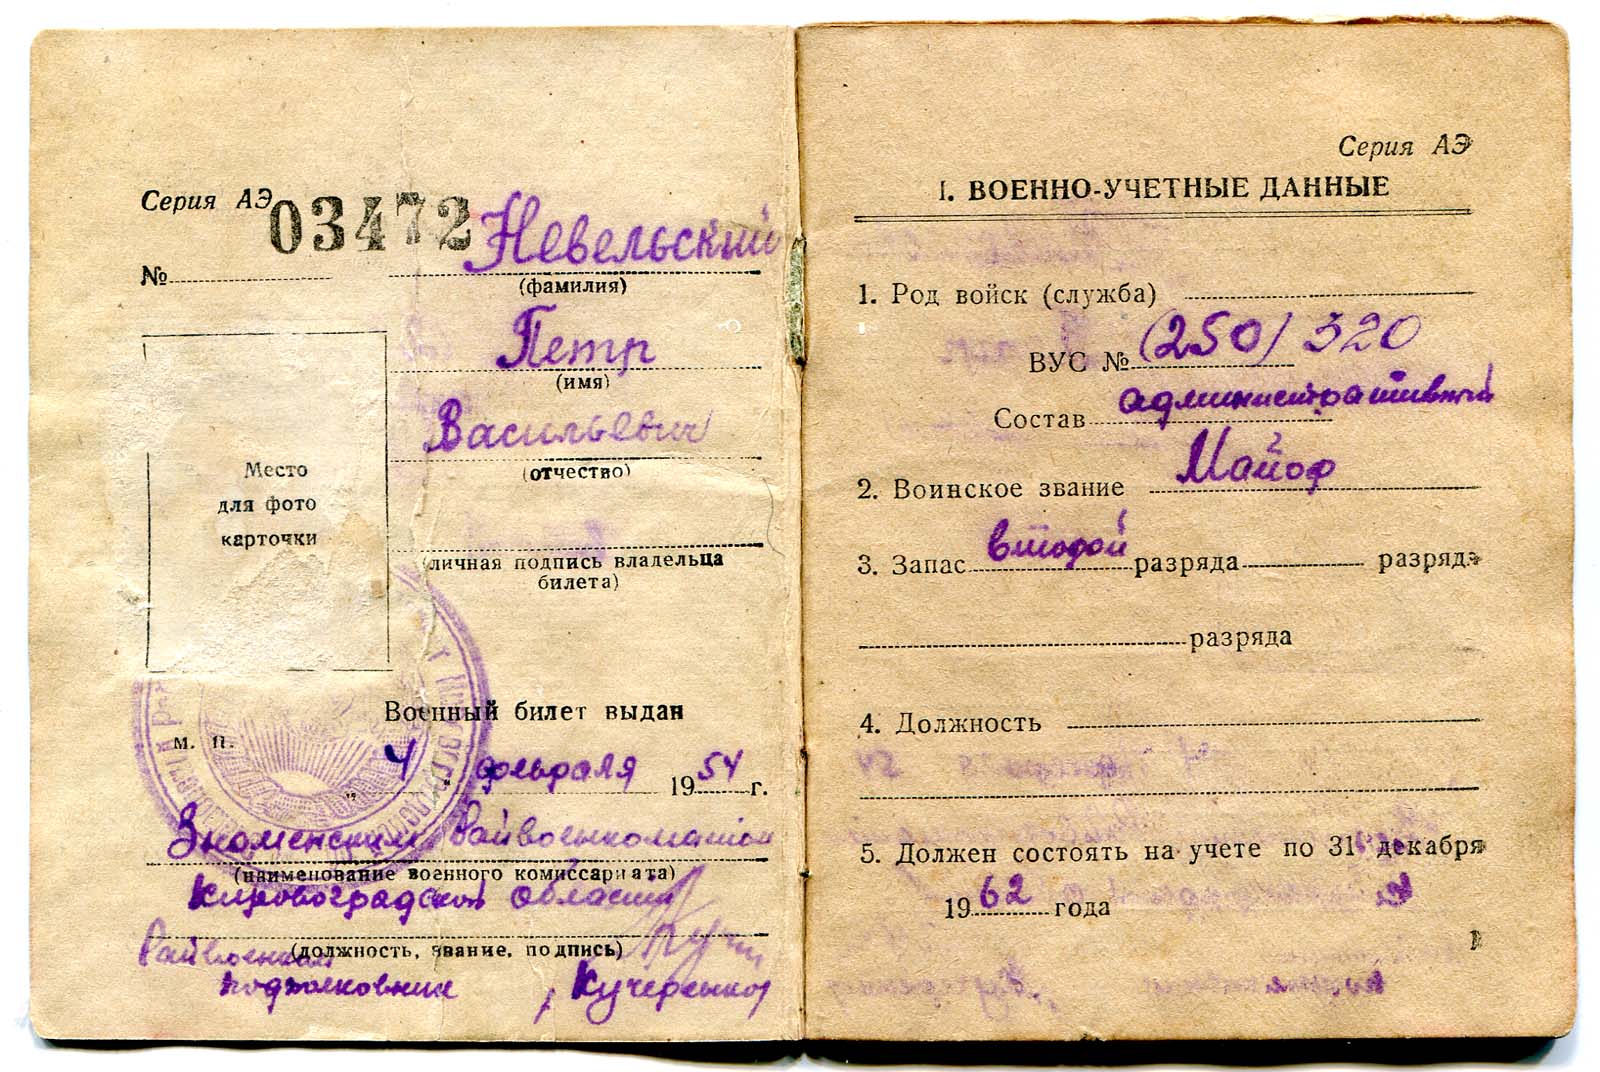 Серия АЭ 03472
№
Невельский
(фамилия)
Петр
(имя)
Васильевич
(отчество)
Место
для фото
карточки
(личная подпись владельца
билета)
Военный билет выдан
м. п.
„ 4 " февраля 1954 г.
Знаменским Райвоенкоматом
(наименование военного комиссариата)
Кировоградской области
(должность, звание, подпись)
Райвоенком
подполковник Кучеренко
Серия АЭ
I. ВОЕННО-УЧЕТНЫЕ ДАННЫЕ
1. Род войск (служба)
ВУС № (250) 320
Состав административный
2. Воинское звание Майор
3. Запас второй разряда разряда
разряда
4. Должность
5. Должен состоять на учете по 31 декабря
1962 года